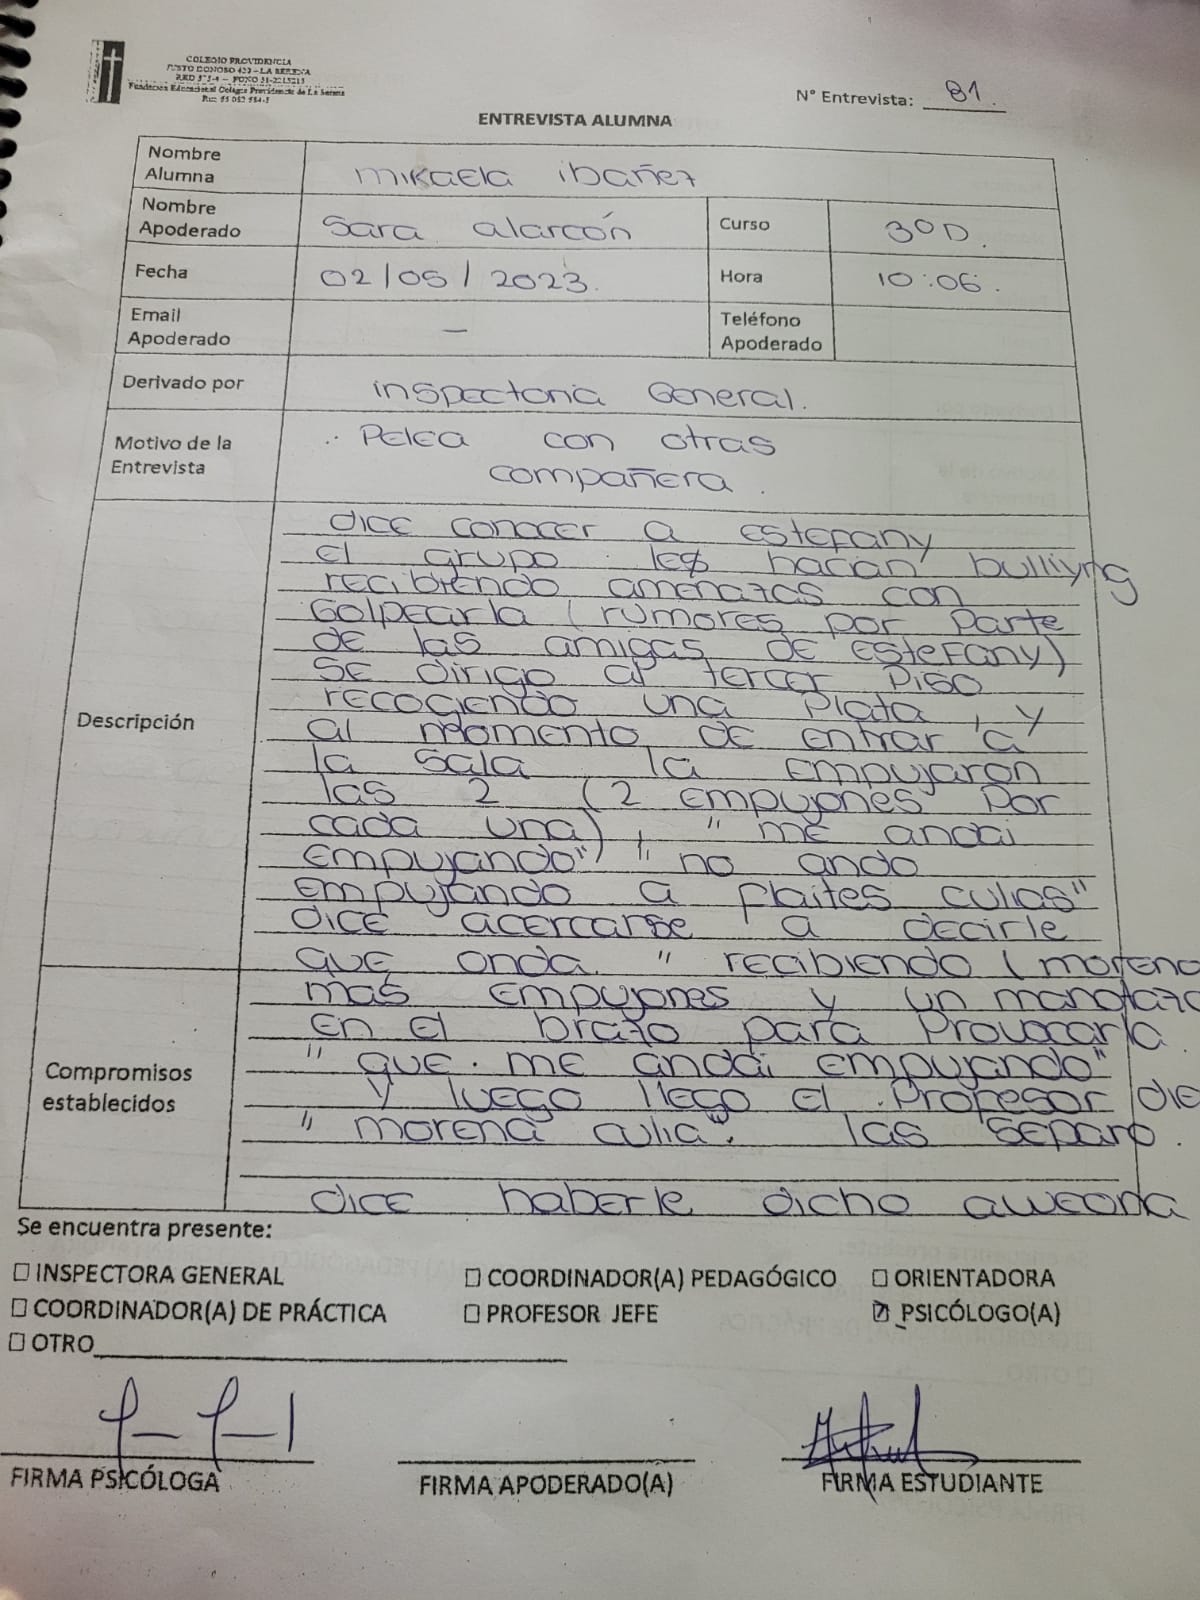 COLEGIO PROVIDENCIA
JUSTO DONOSO 420 - LA SERENA
Fundación Educacional Colegio Providencia de La Serena
N° Entrevista: 81.
ENTREVISTA ALUMNA
Nombre Alumna mikaela ibañez
Nombre Apoderado Sara alarcón Curso 3°D.
Fecha 02/05/2023. Hora 10:06.
Email Apoderado — Teléfono Apoderado
Derivado por inspectoria General.
Motivo de la Entrevista Pelea con otras
compañera.
Descripción
dice conocer a estefany
el grupo les hacian bulliyng
recibiendo amenazas con
Golpearla (rumores por parte
de las amigas de estefany)
se dirigo al tercer piso
recogiendo una plata, y
al momento de entrar a
la sala la empujaron
las 2 (2 empujones por
cada una), "me andai
empujando" "no ando
empujando a flaites culias"
dice acercarse a decirle
que onda. " recibiendo (morena
mas empujones y un manotazo
en el brazo para provocarla.
Compromisos establecidos
"que. me andai empujando"
y luego llego el profesor die
"morena culia". las separo.
dice haberle dicho aweona
Se encuentra presente:
☐ INSPECTORA GENERAL ☐ COORDINADOR(A) PEDAGÓGICO ☐ ORIENTADORA
☐ COORDINADOR(A) DE PRÁCTICA ☐ PROFESOR JEFE ☑ PSICÓLOGO(A)
☐ OTRO
FIRMA PSICÓLOGA FIRMA APODERADO(A) FIRMA ESTUDIANTE